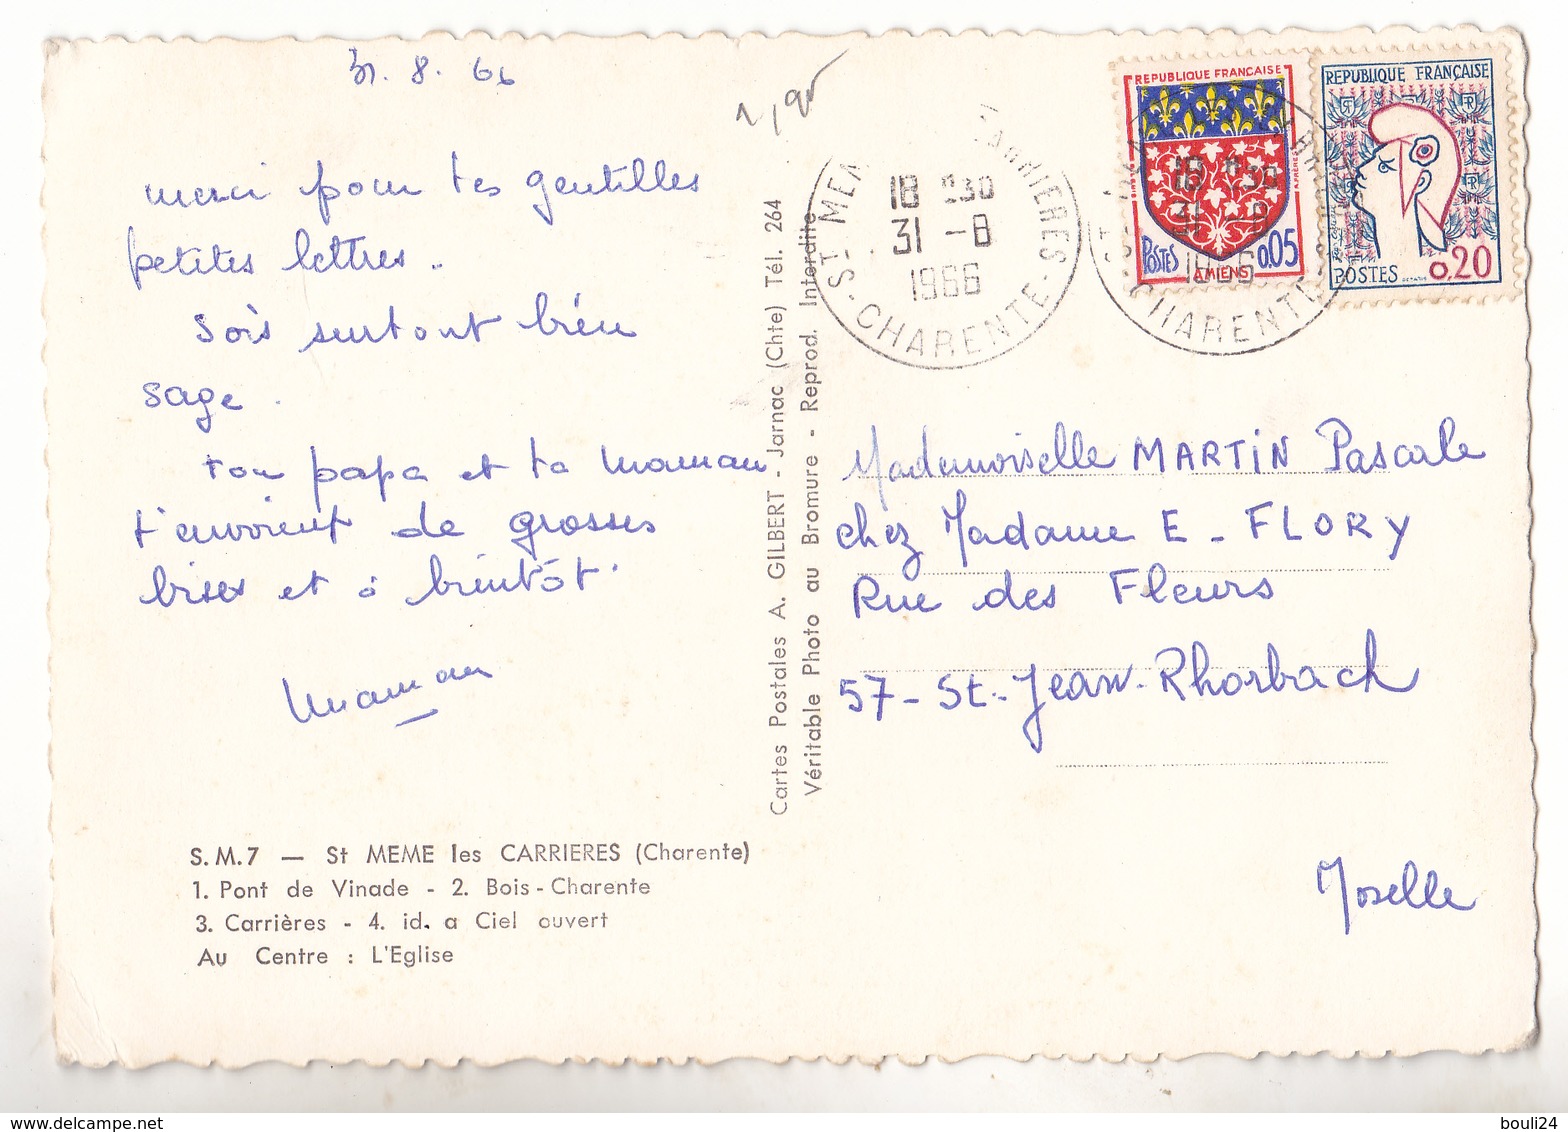 31.8.66
1,90
merci pour tes gentilles
petites lettres.
Sois surtout bien
sage.
ton papa et ta maman
t'envoient de grosses
bises et à bientôt.
Maman
S.M.7 — St MEME les CARRIERES (Charente)
1. Pont de Vinade - 2. Bois-Charente
3. Carrières - 4. id. a Ciel ouvert
Au Centre : L'Eglise
Cartes Postales A. GILBERT - Jarnac (Chte) Tél. 264
Véritable Photo au Bromure - Reprod. Interdite
ST MEM CARRIERES
18 H30
31 -8
1966
- CHARENTE -
REPUBLIQUE FRANÇAISE
POSTES 0,05
AMIENS
18 H30
31 -8
1966
- CHARENTE -
REPUBLIQUE FRANÇAISE
RF
POSTES 0,20
Mademoiselle MARTIN Pascale
chez Madame E - FLORY
Rue des Fleurs
57 - St-Jean-Rhorbach
Moselle
bouli24